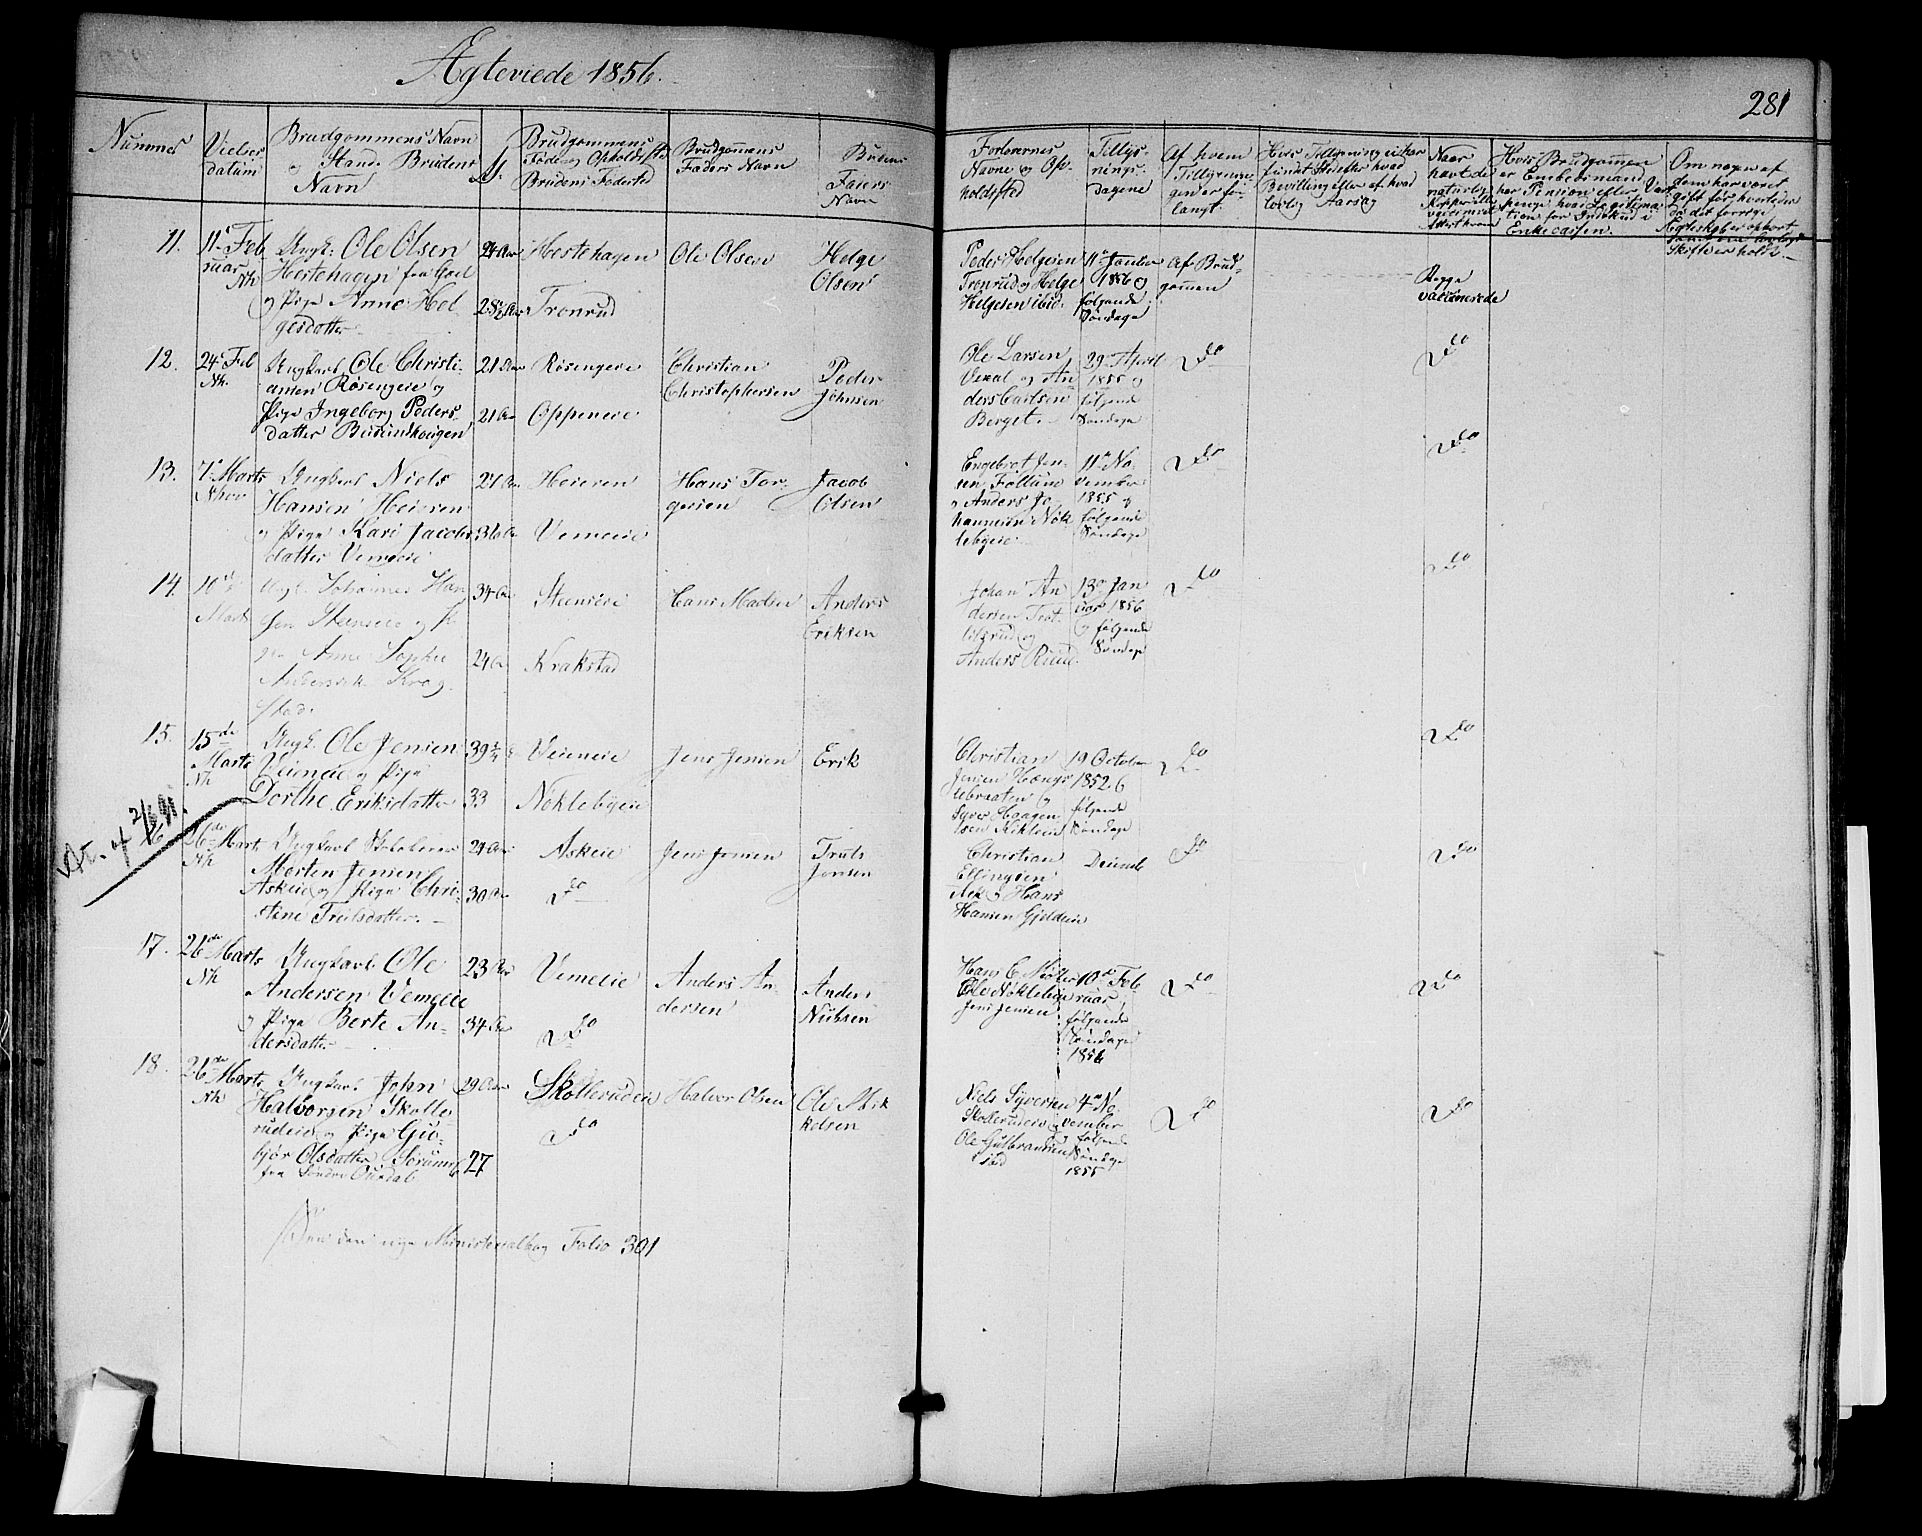 Ægteviede 1856.
281
Nummer
Vielses
datum
Brudgommens Navn
og Stand. Brudens
Navn
Brudgommens
Føde og Opholdsted
Brudens Fødested
Brudgommens
Faders Navn
Brudens
Faders
Navn
Forlovernes
Navne og Op-
holdsted
Tillys-
nings-
dagene
Af hvem
Tillysnin-
gen er for-
langt.
Naar
havt de
naturlige
Kopper eller
vaccineret
Attest hvem
Hvis Brudgommen
er Embedsmand
har Pension eller
Enkecassen.
Om nogen af
dem har været
gift før, hvorledes
da det forrige
Ægteskab er ophørt
Skifte er holdt
11.
11te Feb
ruar
Nh
Ungk: Ole Olsen
Hestehagen fra
og Pige Anne Hel
gesdatter
24 Aar
28½ Aar
Hestehagen
Tronrud
Ole Olsen
Helge
Olsen
Peder Helgesen
Tronrud og Helge
Helgesen ibid.
11te Januar
1856 og
følgende
Søndage
Af Brud-
gommen
Begge
vaccinerede
12.
24 Feb
Nh.
Ungkarl Ole Christi-
ansen Røsengeie og
Pige Ingeborg Peders
datter Busundhougen
21 Aar
21 Aar
Røsengeie
Oppeneie
Christian
Christophersen
Peder
Johnsen
Ole Larsen
Vexal og An
ders Carlsen
Berget.
29 April
1855 og
følgende
Søndage
Do
Do
13.
7de Marts
Nhov
Ungkarl Niels
Hansen Heieren
og Pige Kari Jacobs
datter Vemeeie
27 Aar
36 Aar
Heieren
Vemeeie
Hans Tor-
gersen
Jacob
Olsen
Engebret Jen-
sen Follum
og Anders Jo-
hannesen Nøk
lebyeie
11te No-
vember
1855 og
følgende
Søndage
Do
Do
14.
10de
Marts
Ungk. Johannes Han
sen Steenseie og Pi
ge Anne Sophie
Andersdt. Krog
stad.
34 Aar
24 Aar
Steenseie
Krakstad
Hans Madsen
Anders
Eriksen
Johan An
dersen Trot
ilsrud og
Anders Ruud.
13de Jan
uar 1856
og følgende
Søndage
Do
Do
15.
15de
Marts
Nh
Ungk. Ole Jensen
Veieneie og Pige
Dorthe Eriksdatter
39
33
Veieneie
Nøklebyeie
Jens Jensen
Erik
Christian
Jensen Hængs
lebraaten og
Syver Haagen
sen
19 October
1852 og
følgende
Søndage
Do
Do
16
26de Marts
Nh
Ungkarl
Morten Jensen
Askeie og Pige Chri-
stine Trulsdatter.
30 Aar
Askeie
Do
Jens Jensen
Truls
Jensen
Christian
Ellingsen
Ask og Hans
Hansen Gjeldeie
Do
Do
17.
26de Marts
Nh
Ungkarl Ole
Andersen Vemeeie
og Pige Berte An-
dersdatter
23 Aar
34 Aar
Vemeeie
Do
Anders An-
dersen
Anders
Nubsen
Hans C. Møller
Ole Nøklebye
Jens Jensen
10de Feb
ruar
følgende
Søndage
1856
Do
Do
18.
26de Marts
Nh
Ungkarl John
Halvorsen Skolle
rudeie og Pige Gu-
bjør Olsdatter
fra Søndre Ourdal
29 Aar
27
Skollerudeie
Do
Halvor Olsen
Ole Mik
kelsen
Niels Syversen
Skollerudeie og
Ole Gulbrandsen
ibid
4de No-
vember
og følgende
Søndage
1855
Do
Do
den nye Ministerialbog Folio 301